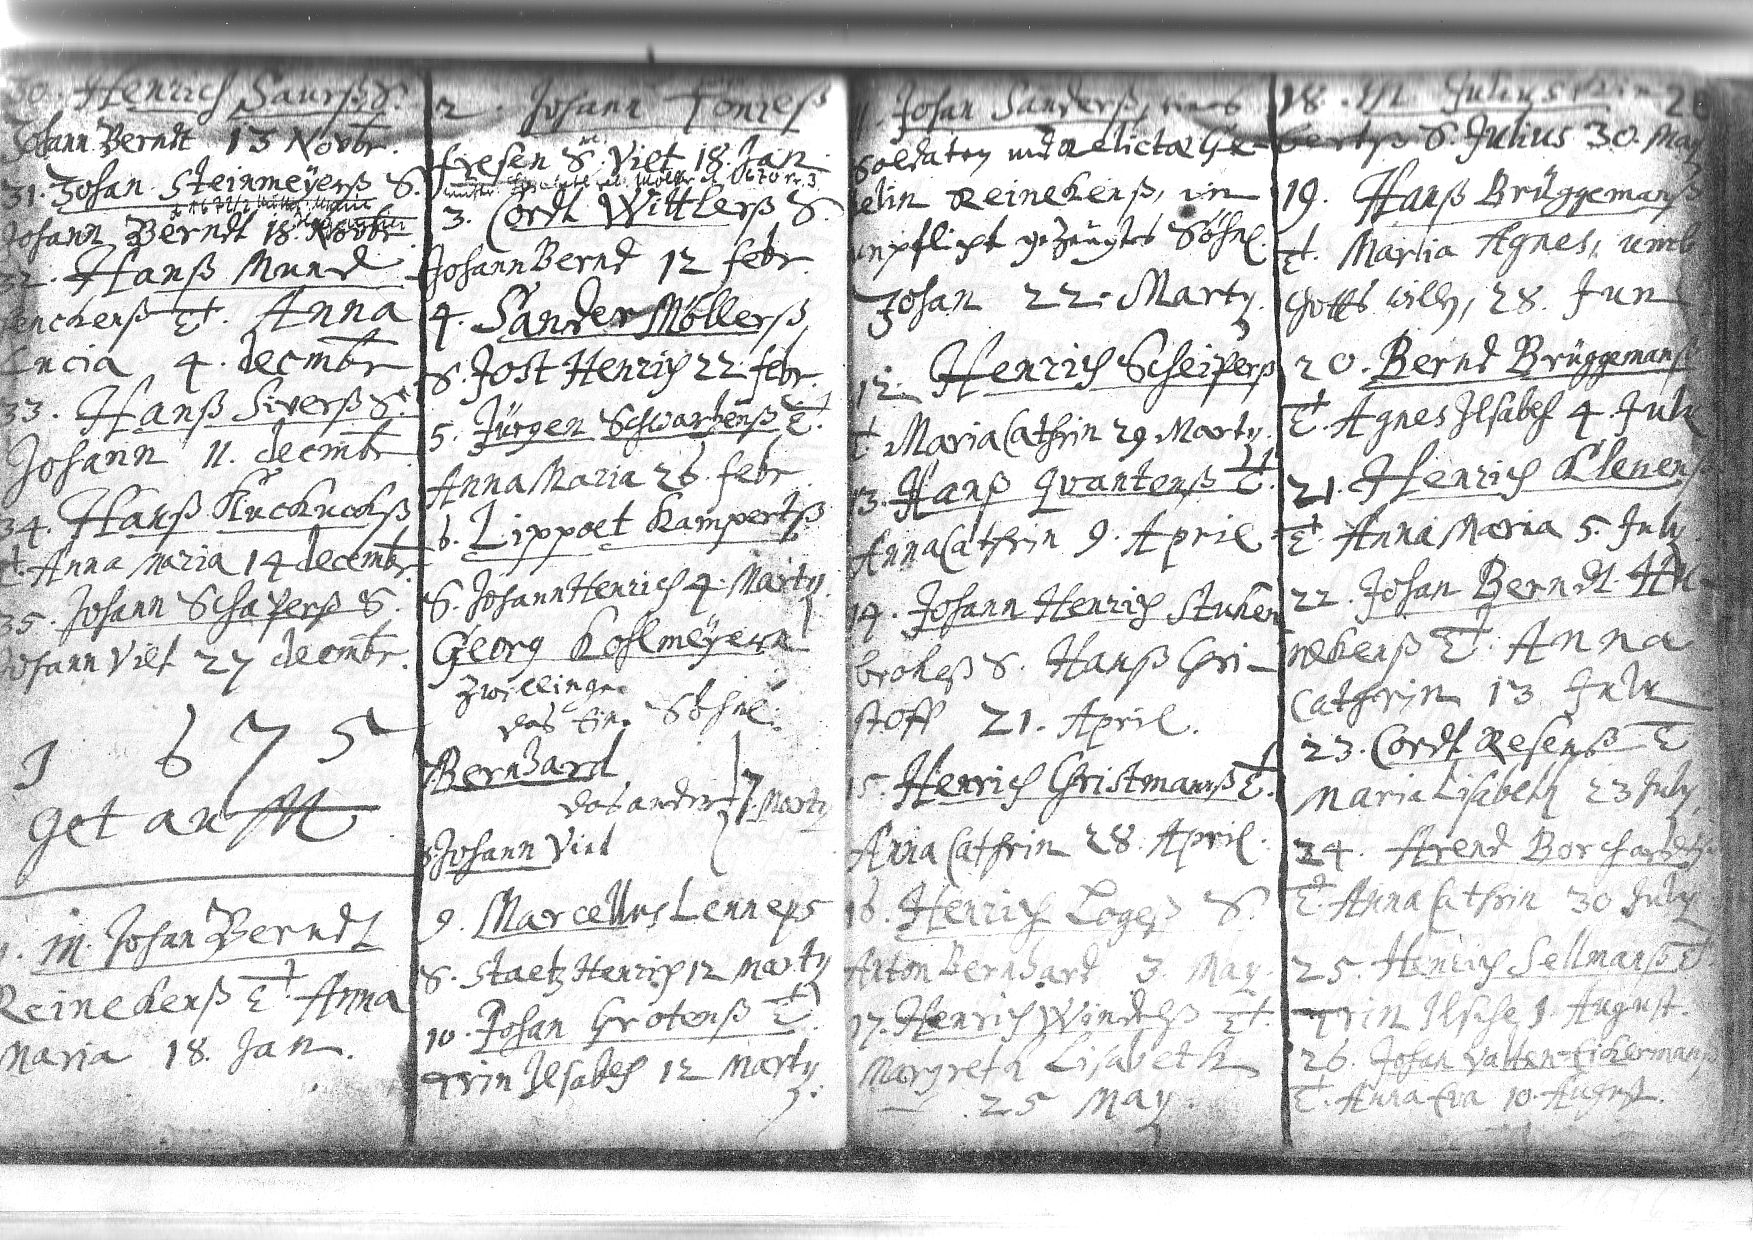 30. Henrich Saurß S.
Johann Berndt 13 Novbr.
31. Johan Steinmeyerß S.
Johann Berndt 18. Novbr.
32. Hanß Mund
Anna
Lucia 4. decmbr
33. Hanß Siverß S.
Johann 11. decmbr.
34. Hanß Kuckuckß
Anna Maria 14 decembr.
35. Johann Schaperß S.
Johann Vilt 27 decmbr.
1675
getaufft
1. M. Johan Berndt
Reinekenß T. Anna
Maria 18. Jan.
2. Johann Tonieß
fresen S. Vilt 18. Jan
3. Cordt Wittlerß S.
Johann Bernd 12 febr.
4. Sander Möllerß
S. Jost Henrich 22 febr.
5. Jürgen Schwartzenß T.
Anna Maria 26. febr
6. Kampertß
S. Johann Henrich 4. Marty.
Georg Kohlmeyern
Zwillinge
das Eine Söhnl.
7. Bernhard
das ander 7. Marty
8. Johann Vilt
9. Marcellus Lenneps
S. Staetz Henrich 12 Marty
10. Johan Grotenß T.
Trin Ilsabeh 12 Marty
11. Johan Sanderß, eines
Soldaten und relictae Ge-
Reinekenß, in
unpflicht gezeugtes Söhnl.
Johan 22. Marty.
12. Henrich Scheiperß
T. Maria Cathrin 29 Marty.
13. Hanß Quantenß T.
Anna Cathrin 9. April
14. Johann Henrich Stuken
brokeß S. Hanß Chri-
stoff 21. April.
15. Henrich Christmannß T.
Anna Cathrin 28. April.
16. Henrich Logeß S.
Anton Bernhard 3. May.
17. Henrich Windelß T.
Margreth Lisabeth
25 May.
18. Julius
S. Julius 30. May
19. Hanß Brüggemanß
T. Maria Agnes, umb
Gotts willn, 28. Jun
20. Bernd Brüggemanß
T. Agnes Ilsabeh 4 July
21. Henrich Klenenß
T. Anna Maria 5. July.
22. Johan Berndt
T. Anna
Cathrin 13 July
23. Cordt Resenß T
Maria Lisabeth 23 July,
24. Arend Borchardtß
T. Anna Cathrin 30 July
25. Henrich Sellmanß T.
Trin Ilsche 1. August.
26. Johan Valten Eickermanß
T. Anna Eva 10. August.